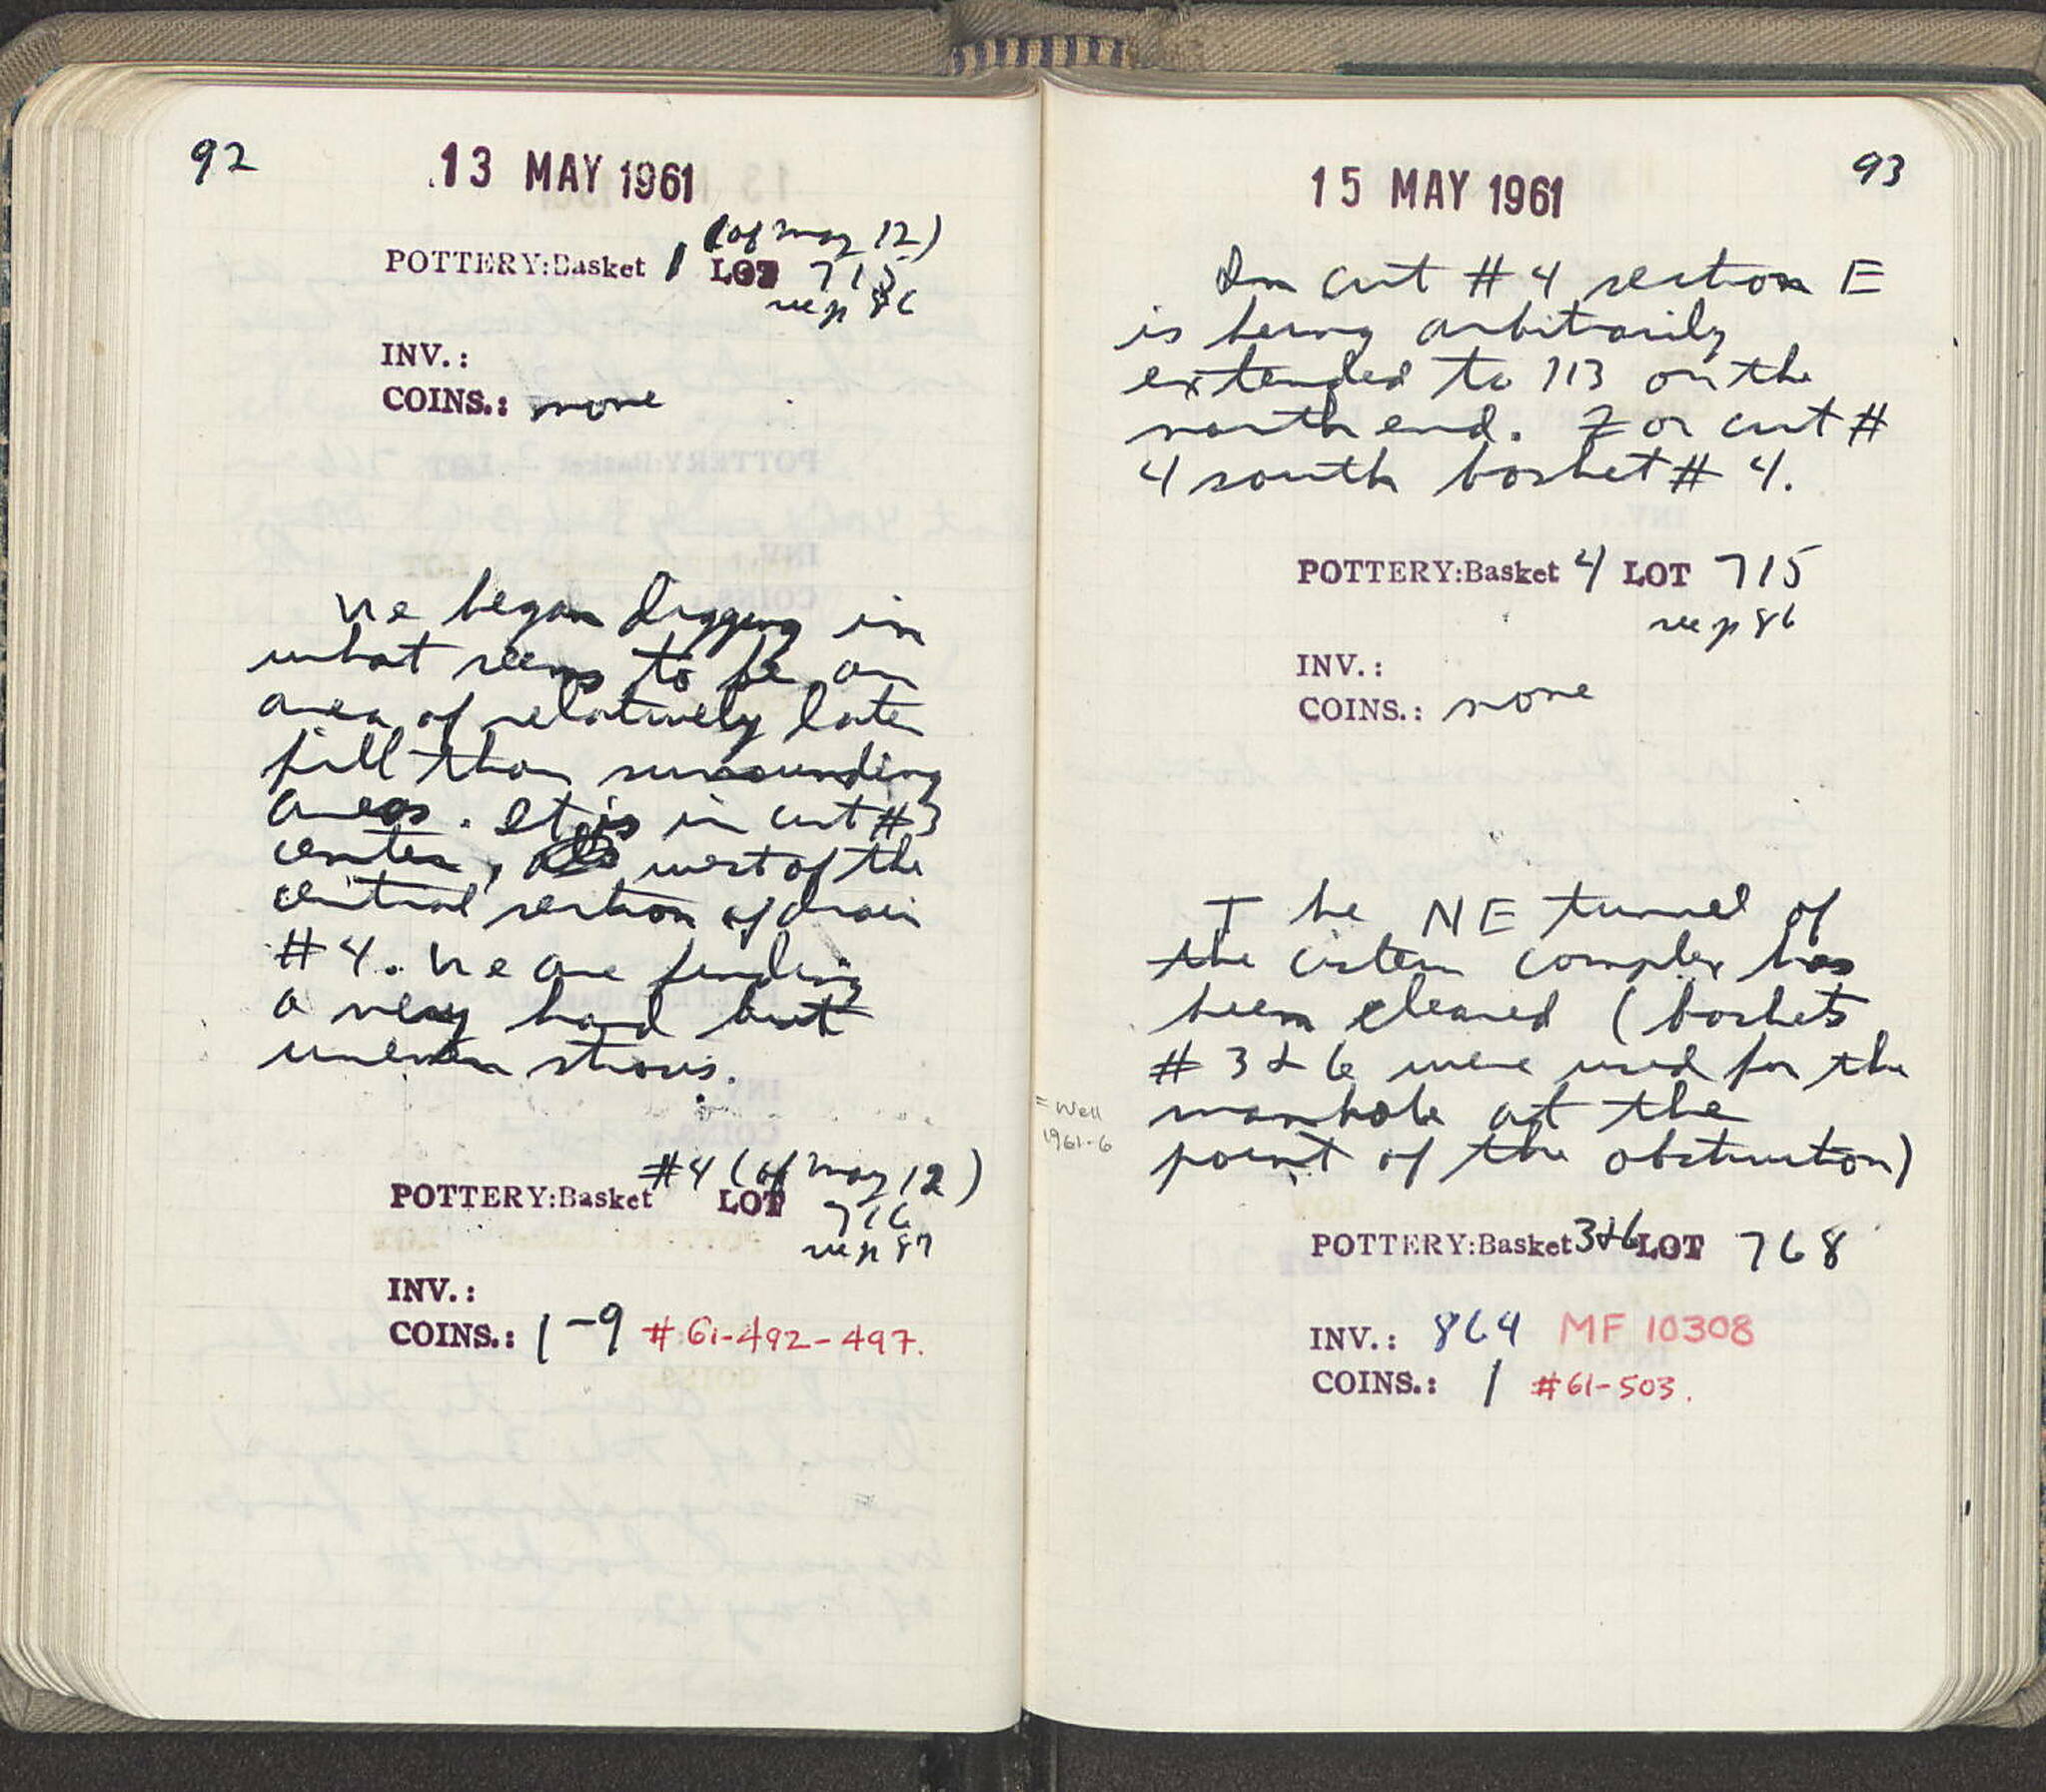 92
13 MAY 1961
(of May 12)
POTTERY:Basket 1 LOT 715
see p 86
INV.:
COINS.: none
We began digging in
what seems to be an
area of relatively late
fill than surrounding
areas. It is in cut #3
center, west of the
central section of drain
#4. We are finding
a very hard but
uneven stroses.
#4 (of May 12)
POTTERY:Basket LOT
716
see p 87
INV.:
COINS.: 1-9 #61-492-497.
93
15 MAY 1961
In cut #4 section E
is being arbitrarily
extended to 113 on the
north end. For cut #
4 south basket #4.
POTTERY:Basket 4 LOT 715
see p 86
INV.:
COINS.: none
The NE tunnel of
the cistern complex has
been cleaned (baskets
#3 & 6 were used for the
manhole at the
point of the obstruction)
= Well
1961-6
POTTERY:Basket 3&6 LOT 768
INV.: 864 MF 10308
COINS.: 1 #61-503.